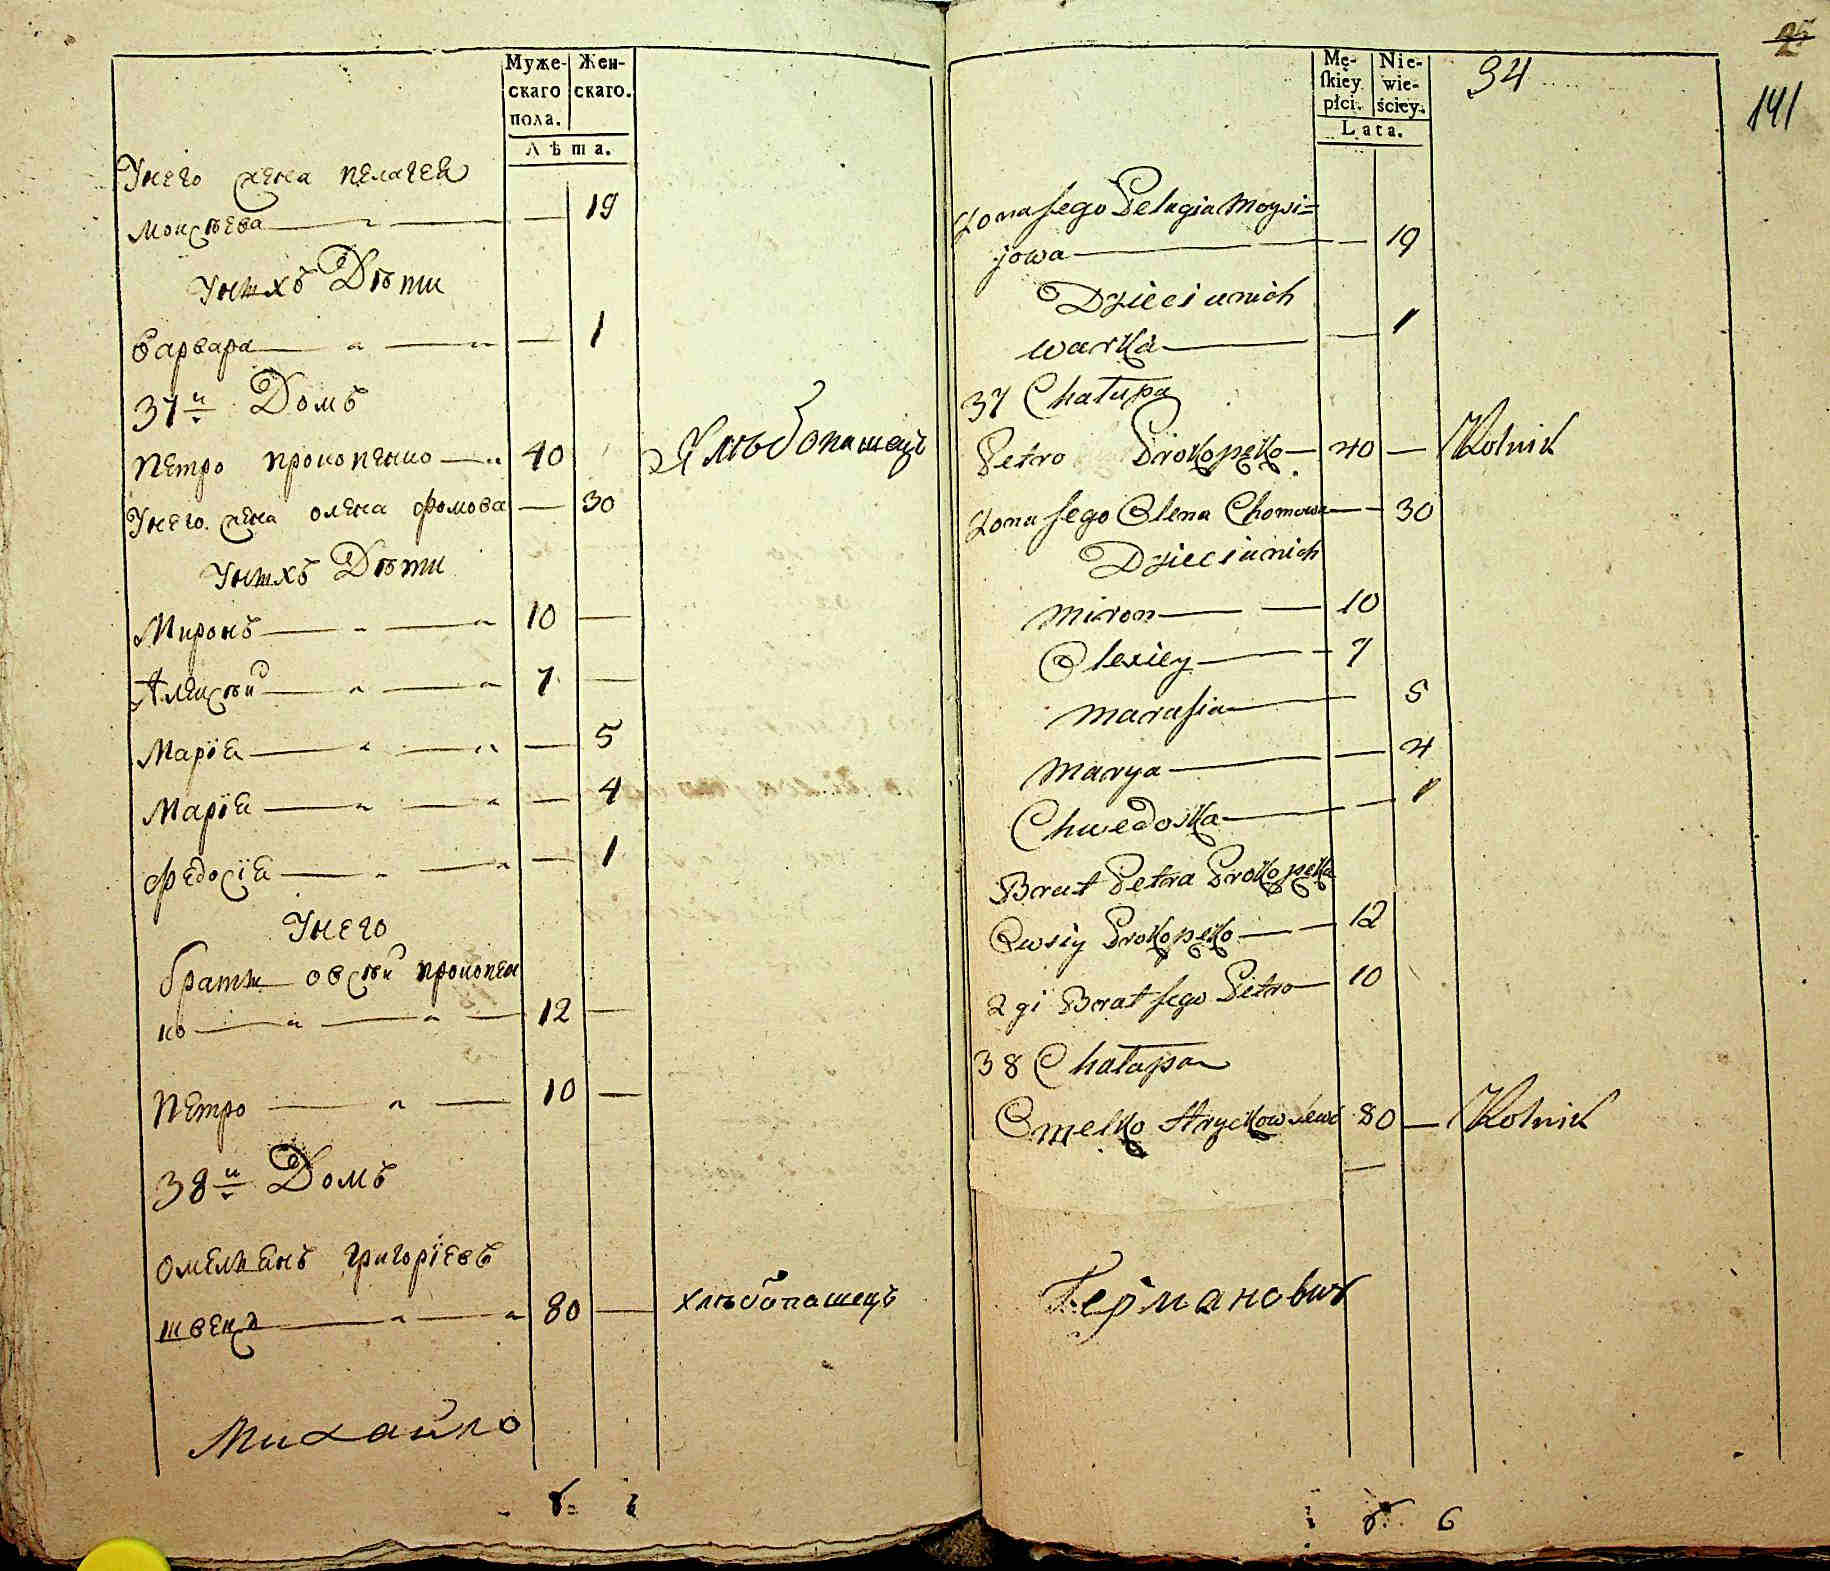 Муже-
скаго
пола.
Жен-
скаго.
Лѣта.
Унего жена пелагея
моисѣева 19
Унихъ Дѣти
Варвара 1
37й Домъ
Петро прокопенко 40 Хлѣбопашецъ
Унего жена олена фомова 30
Унихъ Дѣти
Миронъ 10
Алексѣй 7
Марія 5
Марія 4
Федосія 1
Унего
братъя овсѣй прокопен
ко 12
Петро 10
38й Домъ
Омелянъ григоріевъ
швецъ 80 хлѣбопашецъ
Михайло
Mę-
ſkiey
płci.
Nie-
wie-
ściey.
Lata.
94
25
141
Żona Jego Pelagia Moysi=
jowa 19
Dzieci unich
Warka 1
37 Chałupa
Petro Prokopęko 40 Rolnik
Żona Jego Olena Chomowa 30
Dzieci unich
Miron 10
Olexiey 7
Marusia 5
Marya 4
Chwedoska 1
Brat Petra Prokopęka
Owsiy Prokopęko 12
2gi Brat Jego Petro 10
38 Chałupa
Omelko 80 Rolnik
Германович
6